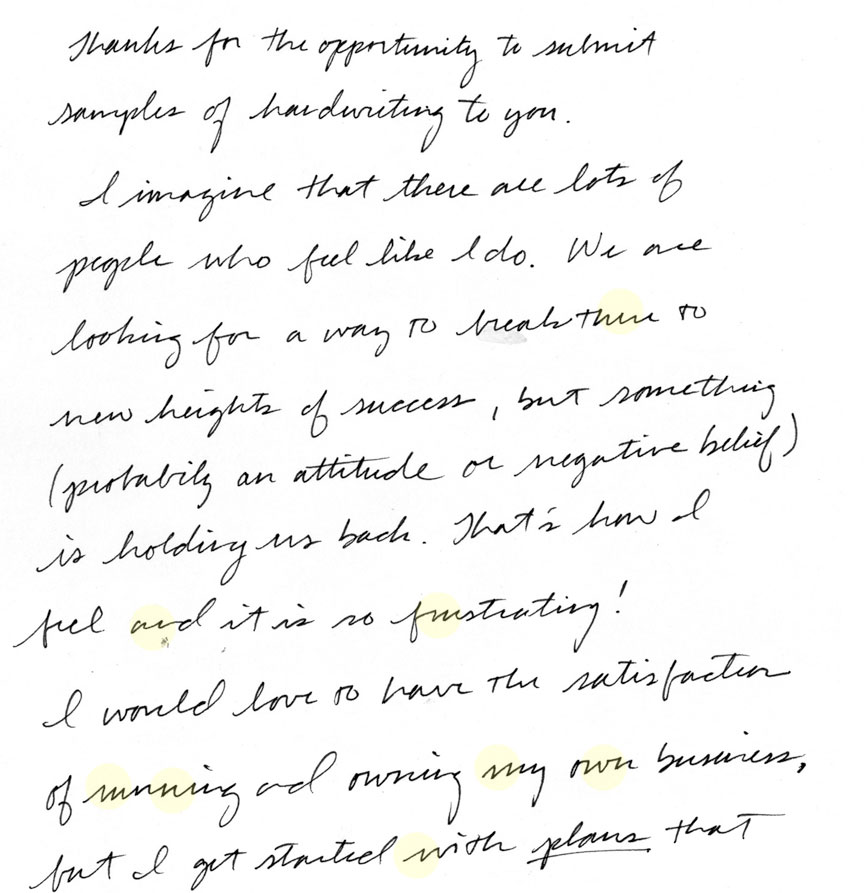 Thanks for the opportunity to submit
samples of handwriting to you.
I imagine that there are lots of
people who feel like I do. We are
looking for a way to break thru to
new heights of success, but something
(probabily an attitude or negative belief)
is holding us back. That's how I
feel and it is so frustrating!
I would love to have the satisfaction
of running and owning my own business,
but I get started with plans that